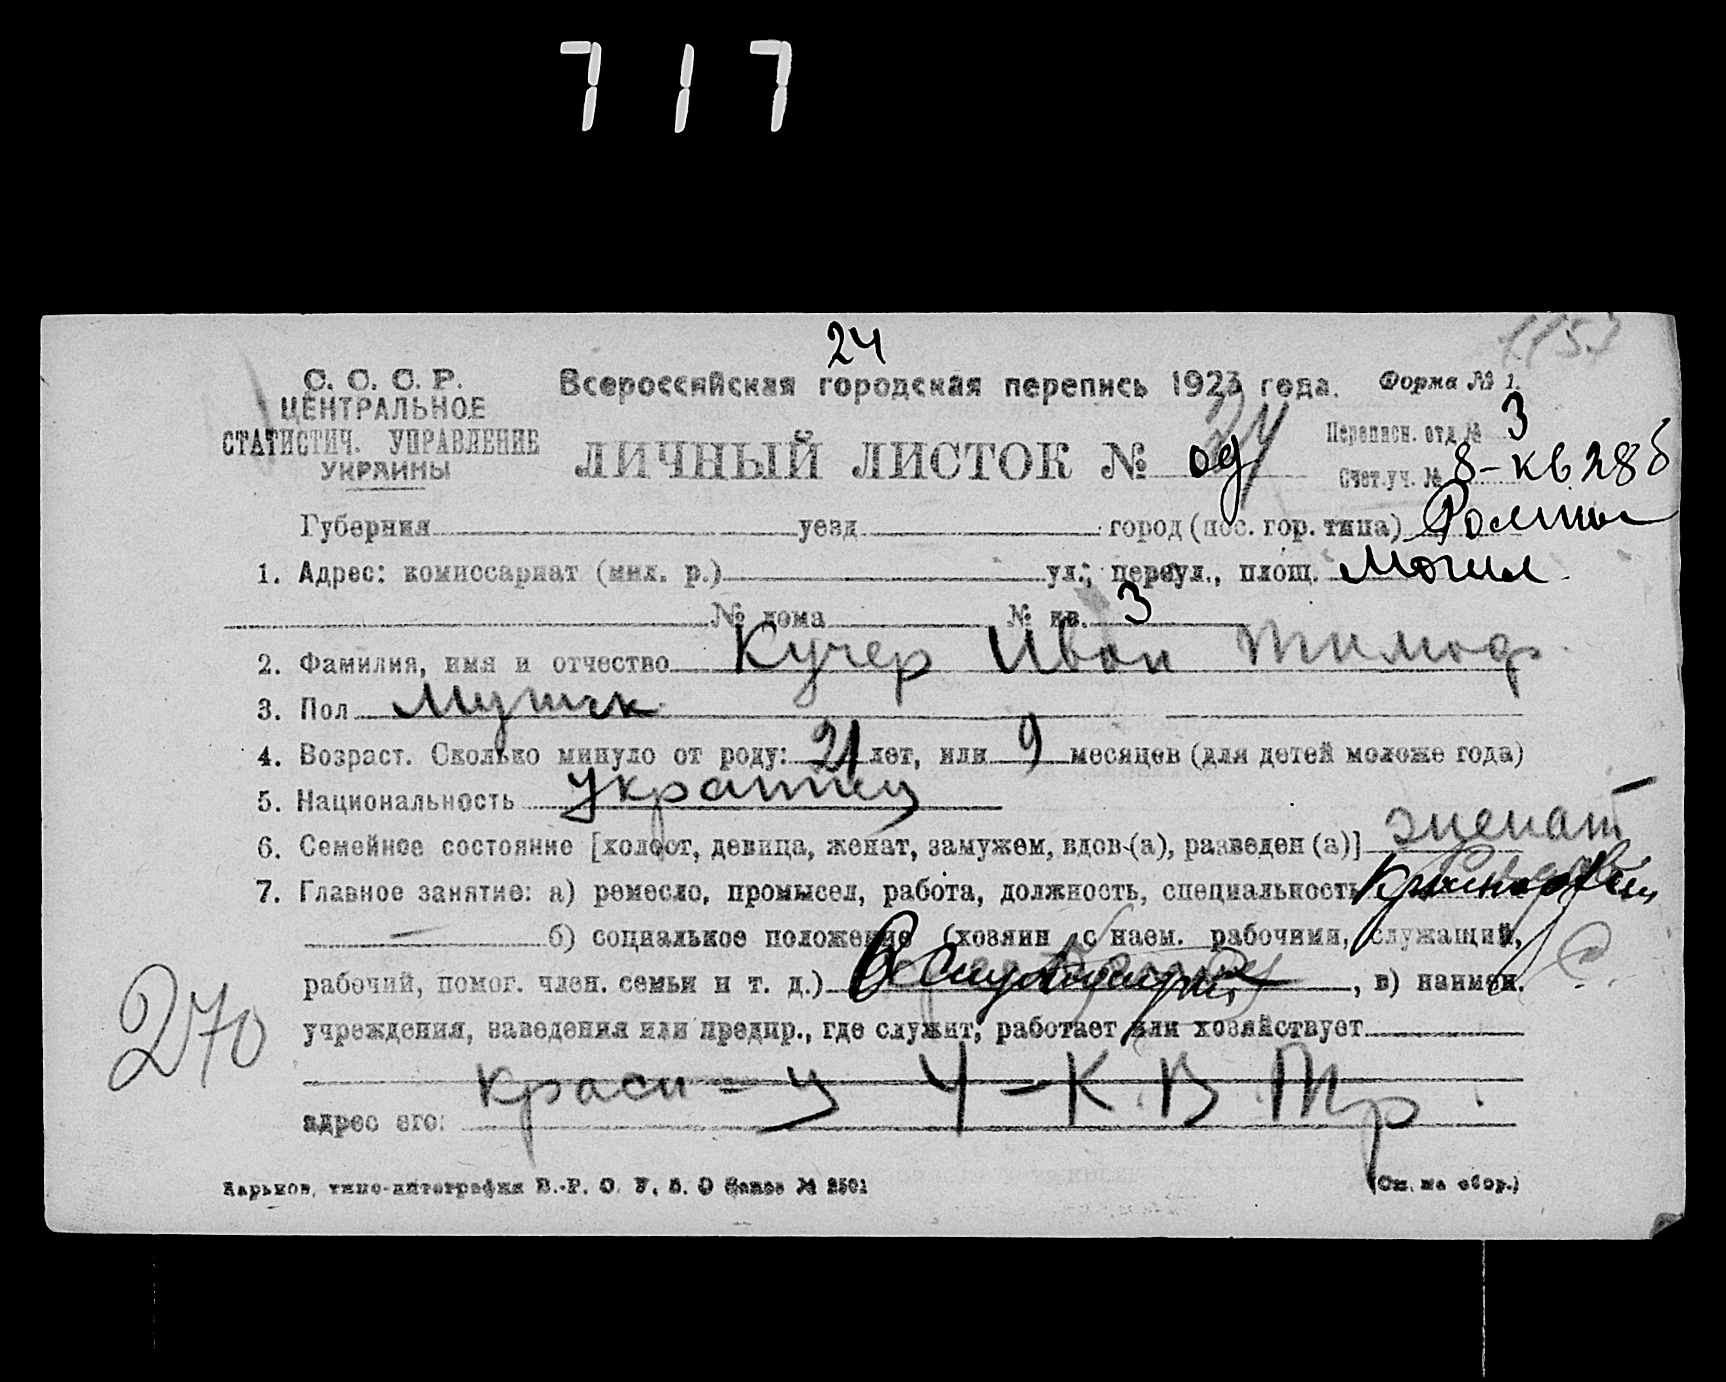 717
1153
24
С. С. С. Р.
ЦЕНТРАЛЬНОЕ
СТАТИСТИЧ. УПРАВЛЕНИЕ
УКРАИНЫ
Всероссийская городская перепись 1923 года. Форма № 1.
ЛИЧНЫЙ ЛИСТОК № 24
Переписн. отд № 3
Счет. уч. № 8-кв 28б
Губерния уезд город (пос. гор. типа) Ромны
1. Адрес: комиссариат (мил. р.) ул., переул., площ. Могил
№ дома № кв. 3
2. Фамилия, имя и отчество Кучер Иван Тимоф.
3. Пол Мужск
4. Возраст. Сколько минуло от роду: 21 лет, или 9 месяцев (для детей моложе года)
5. Национальность Украинец
6. Семейное состояние [холост, девица, женат, замужем, вдов (а), разведен (а)] женат
7. Главное занятие: а) ремесло, промысел, работа, должность, специальность
б) социальное положение (хозяин с наем. рабочими, служащий,
рабочий, помог. член. семьи и т. д.) , в) наимен.
учреждения, заведения или предпр., где служит, работает или хозяйствует
270
адрес его: 4-К. В. Тр.
Харьков, типо-литография В.-Р. О. У. В. О Заказ № 2501 (См. на обор.)